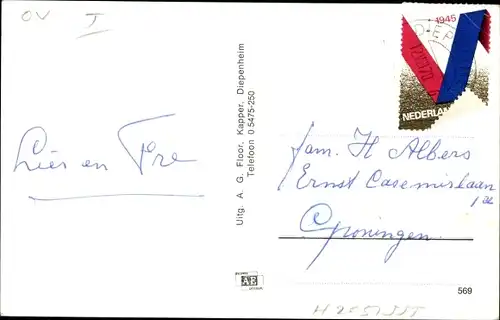 OV I
1945
NEDERLAND
Uitg. A. G. Floor, Kapper, Diepenheim
Telefoon 0 5475-250
Lies en
fam. H Albers
Ernst Casemirlaan
1a
Groningen
AE
569